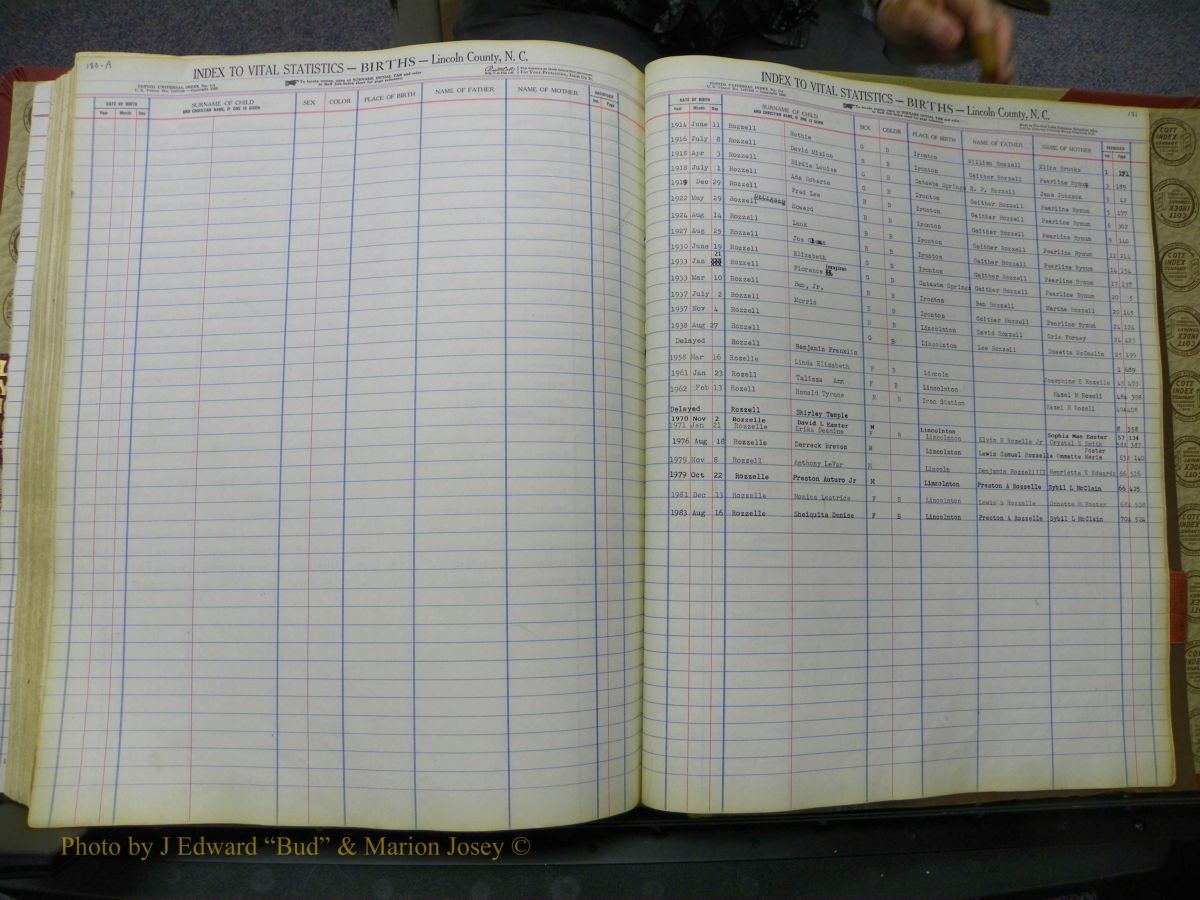 180-A
INDEX TO VITAL STATISTICS — BIRTHS — Lincoln County, N. C.
DATE OF BIRTH SURNAME OF CHILD AND CHRISTIAN NAME, IF ONE IS GIVEN SEX COLOR PLACE OF BIRTH NAME OF FATHER NAME OF MOTHER RECORDED
Year Month Day Vol. Page
INDEX TO VITAL STATISTICS — BIRTHS — Lincoln County, N. C.
181
DATE OF BIRTH SURNAME OF CHILD AND CHRISTIAN NAME, IF ONE IS GIVEN SEX COLOR PLACE OF BIRTH NAME OF FATHER NAME OF MOTHER RECORDED
Year Month Day Vol. Page
1914 June 11 Rozzell Ruthie G B Ironton William Rozzell Eliza Brooks 1
1916 July 8 Rozzell David Mixion B B Ironton Gaither Rozzell Pearline Bynum 3 189
1918 Apr 3 Rozzell Birdie Louise G B Catawba Springs R. P. Rozzell Jena Johnson 5 42
1918 July 1 Rozzell Ada Roberta G B Ironton Gaither Rozzell Pearline Bynum 5 177
1919 Dec 29 Rozzell Fred Lee B B Ironton Gaither Rozzell Pearline Bynum 6 302
1922 May 29 Rozzell Howard B B Ironton Gaither Rozzell Pearline Bynum 9 140
1924 Aug 14 Rozzell Lank B B Ironton Gaither Rozzell Pearline Bynum 11 214
1927 Aug 25 Rozzell Joe B B Ironton Gaither Rozzell Pearline Bynum 14 154
1930 June 19 Rozzell Elizabeth G B Ironton Gaither Rozzell Pearline Bynum 17 137
1933 Jan 21 Rozzell Florence Imogine G B Catawba Springs Ben Rozzell Martha Rozzell 20 5
1933 Mar 10 Rozzell Ben, Jr. B B Ironton Gaither Rozzell Pearline Bynum 20
1937 July 2 Rozzell Morris B B Lincolnton David Rozzell Oris Forney 24 124
1937 Nov 4 Rozzell B B Lincolnton Lee Rozzell Rosetta McCaslin 24 423
1938 Aug 27 Rozzell G B 25 199
Delayed Rozzell Benjamin Franklin 1 689
1958 Mar 16 Rozelle Linda Elizabeth F B Lincoln Josephine E Rozelle 45 473
1961 Jan 23 Rozell Talissa Ann F B Lincolnton Hazel M Rozell 48A 398
1962 Feb 13 Rozell Ronald Tyrone M B Iron Station Hazel M Rozell
Delayed Rozzell Shirley Temple 8 358
1970 Nov 2 Rozzelle David L Easter M Lincolnton Sophia Mae Easter 57 134
1971 Jan 21 Rozzelle Erika Deanine F B Lincolnton Elvin R Rozelle Jr Crystal E Smith 58A 387
1976 Aug 18 Rozzelle Derreck Brevon M Lincolnton Lewis Samuel Rozzelle Onnette Marie Foster 63A 140
1979 Nov 8 Rozzell Anthony LeVar M Lincoln Benjamin Rozzell III Henrietta E Edwards 66 516
1979 Oct 22 Rozzelle Preston Auturo Jr M Lincolnton Preston A Rozzelle Sybil L McClain 66 425
1981 Dec 13 Rozzelle Monica Leatrice F B Lincolnton Lewis S Rozzelle Onnette M Foster 68A 508
1983 Aug 16 Rozzelle Sheiquita Denise F B Lincolnton Preston A Rozzelle Sybil L McClain 70A 524
COTT INDEX COMPANY
Photo by J Edward “Bud” & Marion Josey ©